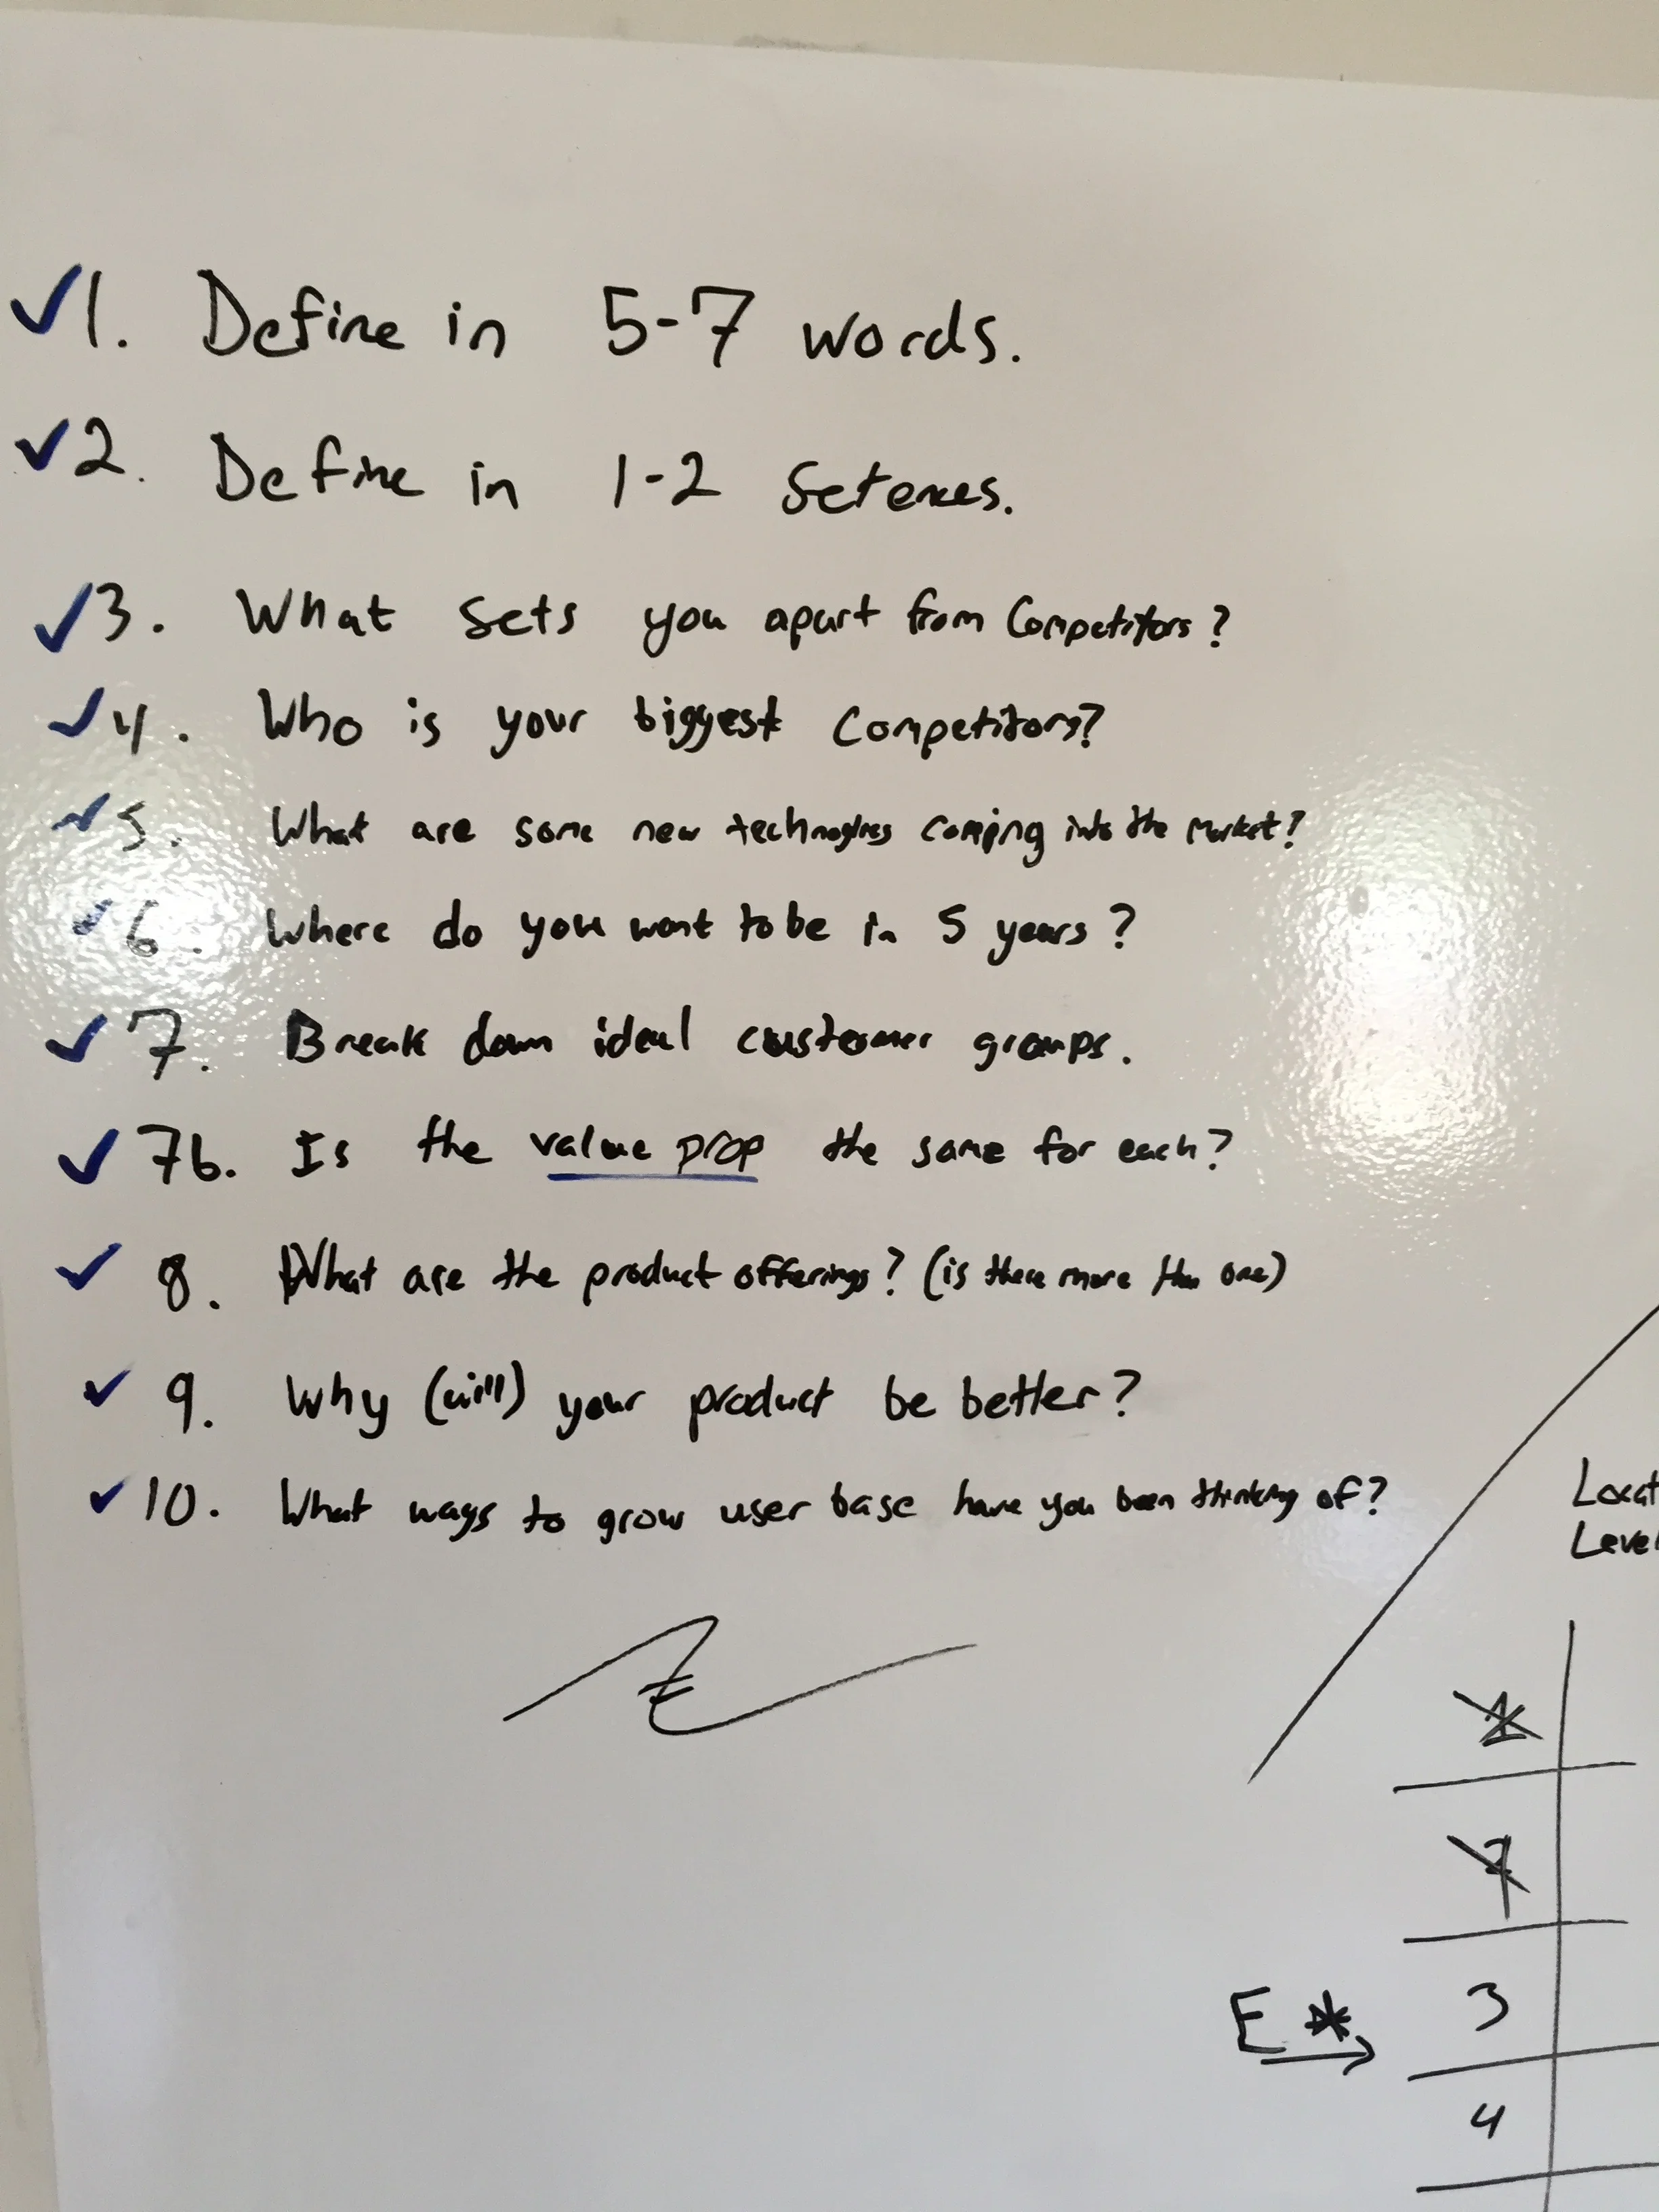 ✓1. Define in 5-7 words.
✓2. Define in 1-2 Setences.
✓3. What sets you apart from Competitors?
✓4. Who is your biggest Competitors?
✓5. What are some new coming into the Market?
✓6. Where do you want to be in 5 years?
✓7. Break down ideal customer groups.
✓7b. Is the value prop the same for each?
✓8. What are the product offerings? (is there more than one)
✓9. Why (will) your product be better?
✓10. What ways to grow user base have you been thinking of?
Locat
Level
E * → 3
4